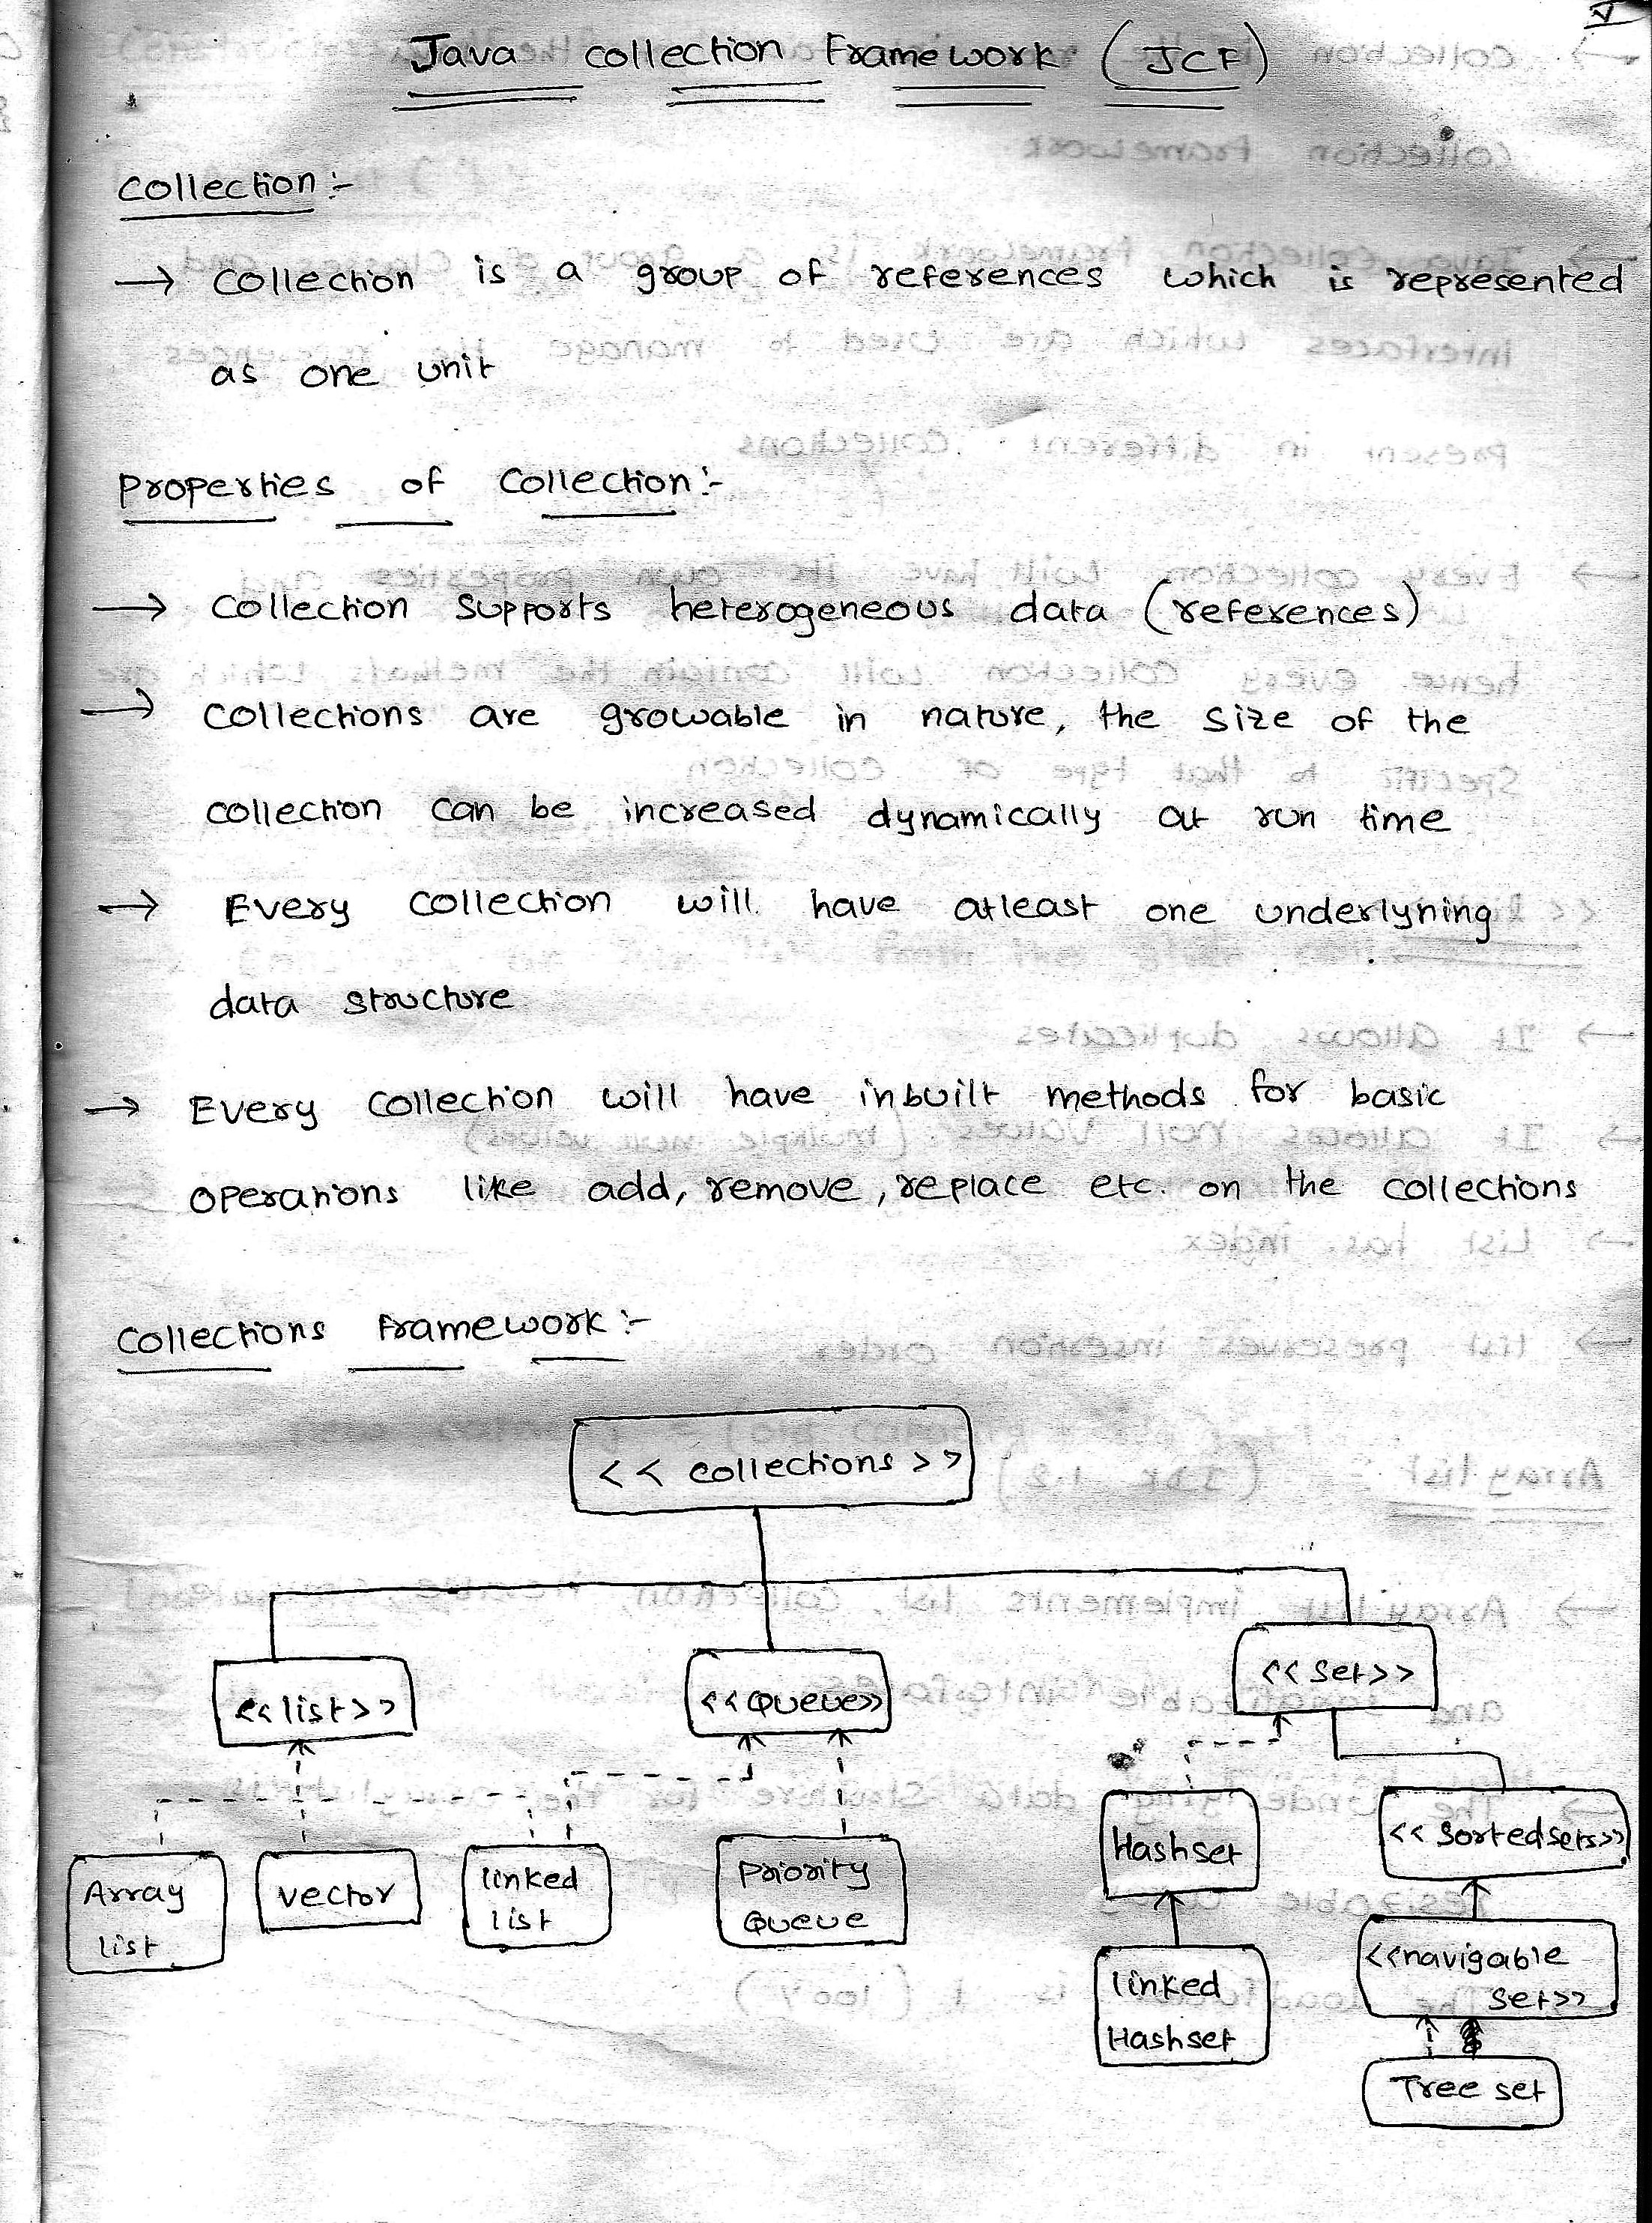 Java collection Framework (JCF)
Collection :-
→ Collection is a group of references which is represented
as one unit
Properties of Collection :-
→ Collection supports heterogeneous data (references)
→ Collections are growable in nature, the size of the
collection can be increased dynamically at run time
→ Every collection will have atleast one underlyning
data structure
→ Every collection will have inbuilt methods for basic
operations like add, remove, replace etc. on the collections
Collections Framework :-
<< collections >>
<<list>>
<<Queue>>
<<set>>
Array
list
vector
linked
list
Priority
Queue
Hashset
<<sortedsets>>
linked
Hashset
<<navigable
set>>
Tree set